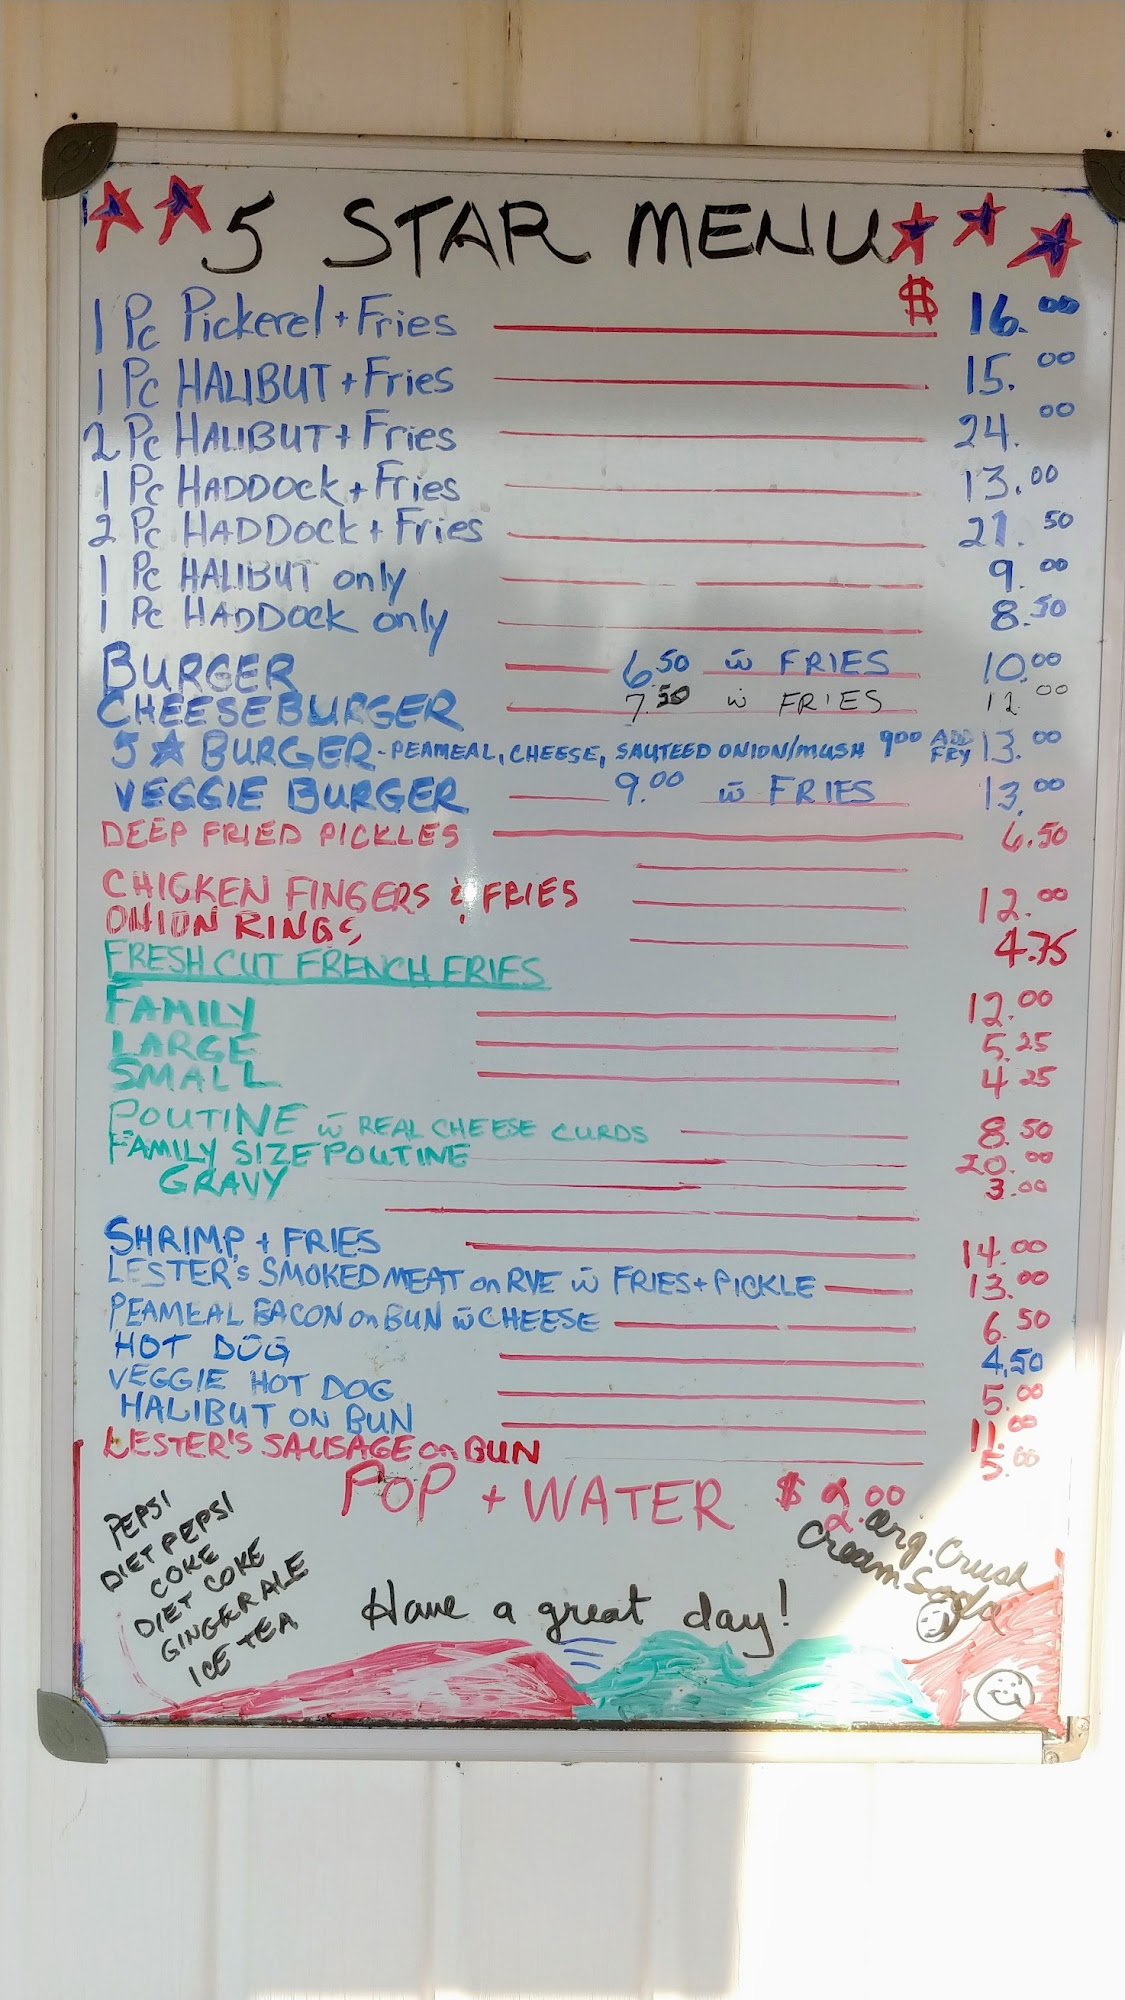 5 STAR MENU
1 Pc Pickerel + Fries $ 16.00
1 Pc HALIBUT + Fries 15.00
2 Pc HALIBUT + Fries 24.00
1 Pc HADDOCK + Fries 13.00
2 Pc HADDOCK + Fries 21.50
1 Pc HALIBUT only 9.00
1 Pc HADDOCK only 8.50
BURGER 6.50 w̄ FRIES 10.00
CHEESEBURGER 7.50 w̄ FRIES 12.00
5 ★ BURGER - PEAMEAL, CHEESE, SAUTEED ONION/MUSH 9.00 ADD FRY 13.00
VEGGIE BURGER 9.00 w̄ FRIES 13.00
DEEP FRIED PICKLES 6.50
CHICKEN FINGERS & FRIES 12.00
ONION RINGS 4.75
FRESH CUT FRENCH FRIES
FAMILY 12.00
LARGE 5.25
SMALL 4.25
POUTINE w̄ REAL CHEESE CURDS 8.50
FAMILY SIZE POUTINE 20.00
GRAVY 3.00
SHRIMP + FRIES 14.00
LESTER'S SMOKED MEAT on RYE w̄ FRIES + PICKLE 13.00
PEAMEAL BACON on BUN w̄ CHEESE 6.50
HOT DOG 4.50
VEGGIE HOT DOG 5.00
HALIBUT ON BUN 11.00
LESTER'S SAUSAGE on BUN 5.00
POP + WATER $ 2.00
PEPSI
DIET PEPSI
COKE
DIET COKE
GINGERALE
ICE TEA
Org. Crush
Cream Soda
Have a great day!